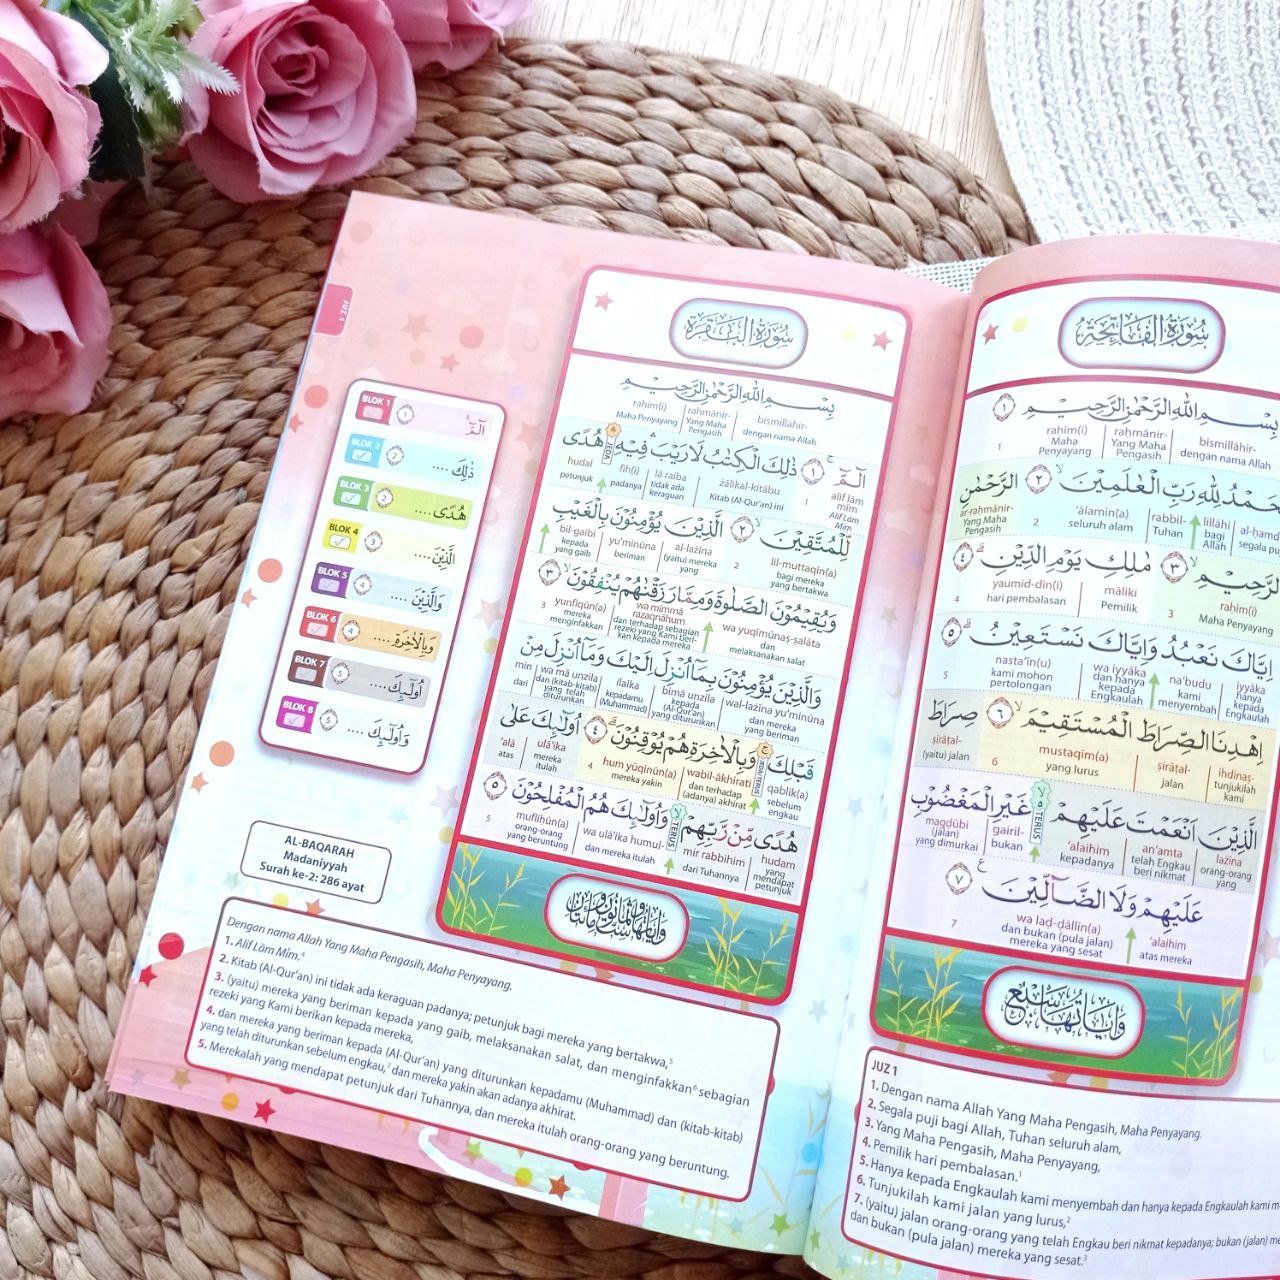 سُورَةُ الْفَاتِحَةِ
بِسْمِ اللّٰهِ الرَّحْمٰنِ الرَّحِيْمِ ١
bismillāhir- raḥmānir- raḥīm(i) 1
dengan nama Allah Yang Maha Pengasih Maha Penyayang
رَبِّ الْعٰلَمِيْنَ ٢ الرَّحْمٰنِ
lillāhi rabbil- ‘ālamīn(a) 2 ar-raḥmānir-
bagi Allah Tuhan seluruh alam Yang Maha Pengasih
الرَّحِيْمِ ٣ مٰلِكِ يَوْمِ الدِّيْنِ ٤
raḥīm(i) 3 māliki yaumid-dīn(i) 4
Maha Penyayang Pemilik hari pembalasan
اِيَّاكَ نَعْبُدُ وَاِيَّاكَ نَسْتَعِيْنُ ٥
iyyāka na‘budu wa iyyāka nasta‘īn(u) 5
hanya kepada Engkaulah kami menyembah dan hanya kepada Engkaulah kami mohon pertolongan
اِهْدِنَا الصِّرَاطَ الْمُسْتَقِيْمَ ٦ صِرَاطَ
ihdinaṣ- ṣirāṭal- mustaqīm(a) 6 ṣirāṭal-
tunjukilah kami jalan yang lurus (yaitu) jalan
الَّذِيْنَ اَنْعَمْتَ عَلَيْهِمْ ۙ٥ غَيْرِ الْمَغْضُوْبِ
TERUS
lażīna an‘amta ‘alaihim gairil- magḍūbi
orang-orang yang telah Engkau beri nikmat kepadanya bukan (jalan) yang dimurkai
عَلَيْهِمْ وَلَا الضَّاۤلِّيْنَ ٧
‘alaihim wa laḍ-ḍāllīn(a) 7
atas mereka dan bukan (pula jalan) mereka yang sesat
وَاٰيَاتُهَا سَبْعٌ
JUZ 1
1. Dengan nama Allah Yang Maha Pengasih, Maha Penyayang.
2. Segala puji bagi Allah, Tuhan seluruh alam,
3. Yang Maha Pengasih, Maha Penyayang,
4. Pemilik hari pembalasan.1
5. Hanya kepada Engkaulah kami menyembah dan hanya kepada Engkaulah kami
6. Tunjukilah kami jalan yang lurus,2
7. (yaitu) jalan orang-orang yang telah Engkau beri nikmat kepadanya; bukan (jalan)
dan bukan (pula jalan) mereka yang sesat.3
JUZ 1
سُورَةُ الْبَقَرَةِ
بِسْمِ اللّٰهِ الرَّحْمٰنِ الرَّحِيْمِ
bismillāhir- raḥmānir- raḥīm(i)
dengan nama Allah Yang Maha Pengasih Maha Penyayang
الۤمّۤ ١ ذٰلِكَ الْكِتٰبُ لَا رَيْبَ فِيْهِ هُدًى
JEDA
alif lām mīm 1 żālikal-kitābu lā raiba fīh(i) hudal
Alif Lām Mīm Kitab (Al-Qur’an) ini tidak ada keraguan padanya petunjuk
لِّلْمُتَّقِيْنَ ٢ الَّذِيْنَ يُؤْمِنُوْنَ بِالْغَيْبِ
lil-muttaqīn(a) 2 al-lażīna yu’minūna bil-gaibi
bagi mereka yang bertakwa (yaitu) mereka yang beriman kepada yang gaib
وَيُقِيْمُوْنَ الصَّلٰوةَ وَمِمَّا رَزَقْنٰهُمْ يُنْفِقُوْنَ ٣
wa yuqīmūnaṣ-ṣalāta wa mimmā razaqnāhum yunfiqūn(a) 3
dan melaksanakan salat dan terhadap sebagian rezeki yang Kami berikan kepada mereka menginfakkan
وَالَّذِيْنَ يُؤْمِنُوْنَ بِمَآ اُنْزِلَ اِلَيْكَ وَمَآ اُنْزِلَ مِنْ
wal-lażīna yu’minūna bimā unzila ilaika wa mā unzila min
dan mereka yang beriman kepada (Al-Qur’an) yang diturunkan kepadamu (Muhammad) dan (kitab-kitab) yang telah diturunkan dari
قَبْلِكَ وَبِالْاٰخِرَةِ هُمْ يُوْقِنُوْنَ ٤ اُولٰۤىِٕكَ عَلٰى
qablik(a) wabil-ākhirati hum yūqinūn(a) 4 ulā’ika ‘alā
sebelum engkau dan terhadap (adanya) akhirat mereka yakin mereka itulah atas
هُدًى مِّنْ رَّبِّهِمْ وَاُولٰۤىِٕكَ هُمُ الْمُفْلِحُوْنَ ٥
TERUS
hudam mir rabbihim wa ulā’ika humul- mufliḥūn(a) 5
mendapat petunjuk dari Tuhannya dan mereka itulah orang-orang yang beruntung
BLOK 1 ١ الۤمّۤ
BLOK 2 ٢ ذٰلِكَ ....
BLOK 3 ٢ هُدًى....
BLOK 4 ٣ الَّذِيْنَ....
BLOK 5 ٤ وَالَّذِيْنَ ....
BLOK 6 ٤ وَبِالْاٰخِرَةِ ....
BLOK 7 ٥ اُولٰۤىِٕكَ....
BLOK 8 ٥ وَاُولٰۤىِٕكَ ....
AL-BAQARAH
Madaniyyah
Surah ke-2: 286 ayat
Dengan nama Allah Yang Maha Pengasih, Maha Penyayang.
1. Alif Lām Mīm.4
2. Kitab (Al-Qur’an) ini tidak ada keraguan padanya; petunjuk bagi mereka yang bertakwa,5
3. (yaitu) mereka yang beriman kepada yang gaib, melaksanakan salat, dan menginfakkan6 sebagian
rezeki yang Kami berikan kepada mereka,
4. dan mereka yang beriman kepada (Al-Qur’an) yang diturunkan kepadamu (Muhammad) dan (kitab-kitab)
yang telah diturunkan sebelum engkau,7 dan mereka yakin akan adanya akhirat.
5. Merekalah yang mendapat petunjuk dari Tuhannya, dan mereka itulah orang-orang yang beruntung.